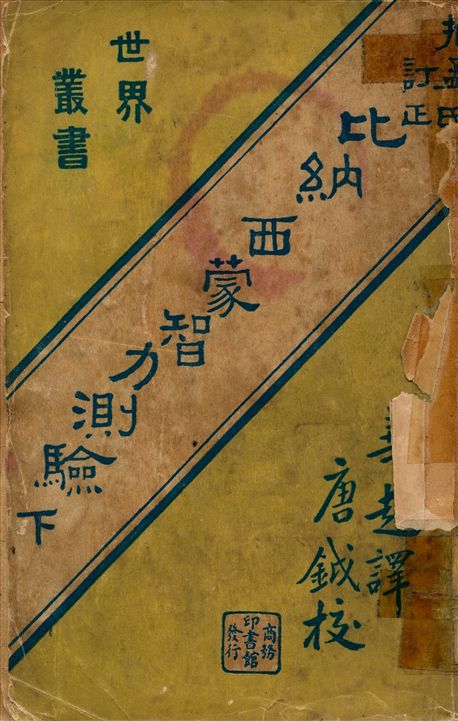 訂正
比納西蒙智力測驗 下
世界
叢書
譯
唐鉞校
商務
印書館
發行